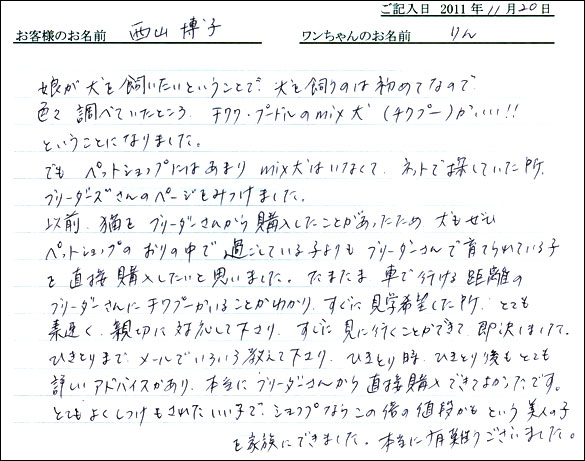 ご記入日 2011年11月20日
お客様のお名前 西山 博子 ワンちゃんのお名前 りん
娘が犬を飼いたいということで、犬を飼うのは初めてなので
色々調べていたところ、チワワ・プードルのmix犬(チワプー)がいい!!
ということになりました。
でも ペットショップにはあまり mix犬はいなくて、ネットで探していた所、
ブリーダーズさんのページをみつけました。
以前、猫を ブリーダーさんから購入したことがあったため 犬もぜひ
ペットショップの おりの中で 過ごしている子よりも ブリーダーさんで育てられている子
を 直接購入したいと思いました。たまたま 車で行ける距離の
ブリーダーさんに チワプーがいることがわかり、すぐに見学希望した所、とても
素速く、親切に 対応して下さり、すぐに 見に行くことができて、即決しまして、
ひきとりまで、メールでいろいろ教えて下さり、ひきとり時、ひきとり後も とても
詳しいアドバイスがあり、本当に ブリーダーさんから 直接購入できてよかったです。
とてもよくしつけもされていいまで、ショップならこの倍の値段かも という 美人の子
を家族にできました。本当に有難うございました。